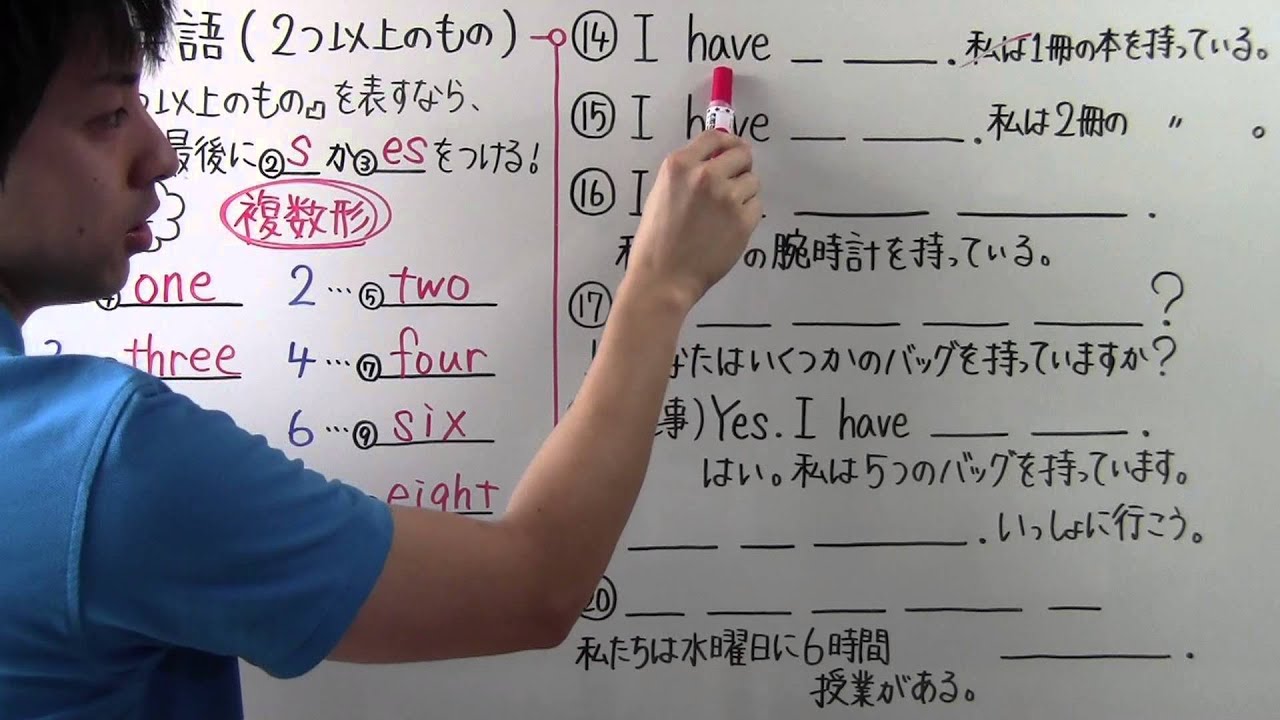 語(2つ以上のもの)
つ以上のもの』を表すなら、
最後に②sか③esをつける!
複数形
one 2…⑤two
three 4…⑦four
6…⑨six
eight
⑭ I have _ ____. 私は1冊の本を持っている。
⑮ I have __ ____. 私は2冊の 〃 。
⑯ I ____ ____.
の腕時計を持っている。
⑰ ___ ____ ___ ____?
なたはいくつかのバッグを持っていますか?
事)Yes. I have ___ ____.
はい。私は5つのバッグを持っています。
____ _ _____. いっしょに行こう。
⑳ ___ ____ ___ ____ __
私たちは水曜日に6時間 _____.
授業がある。